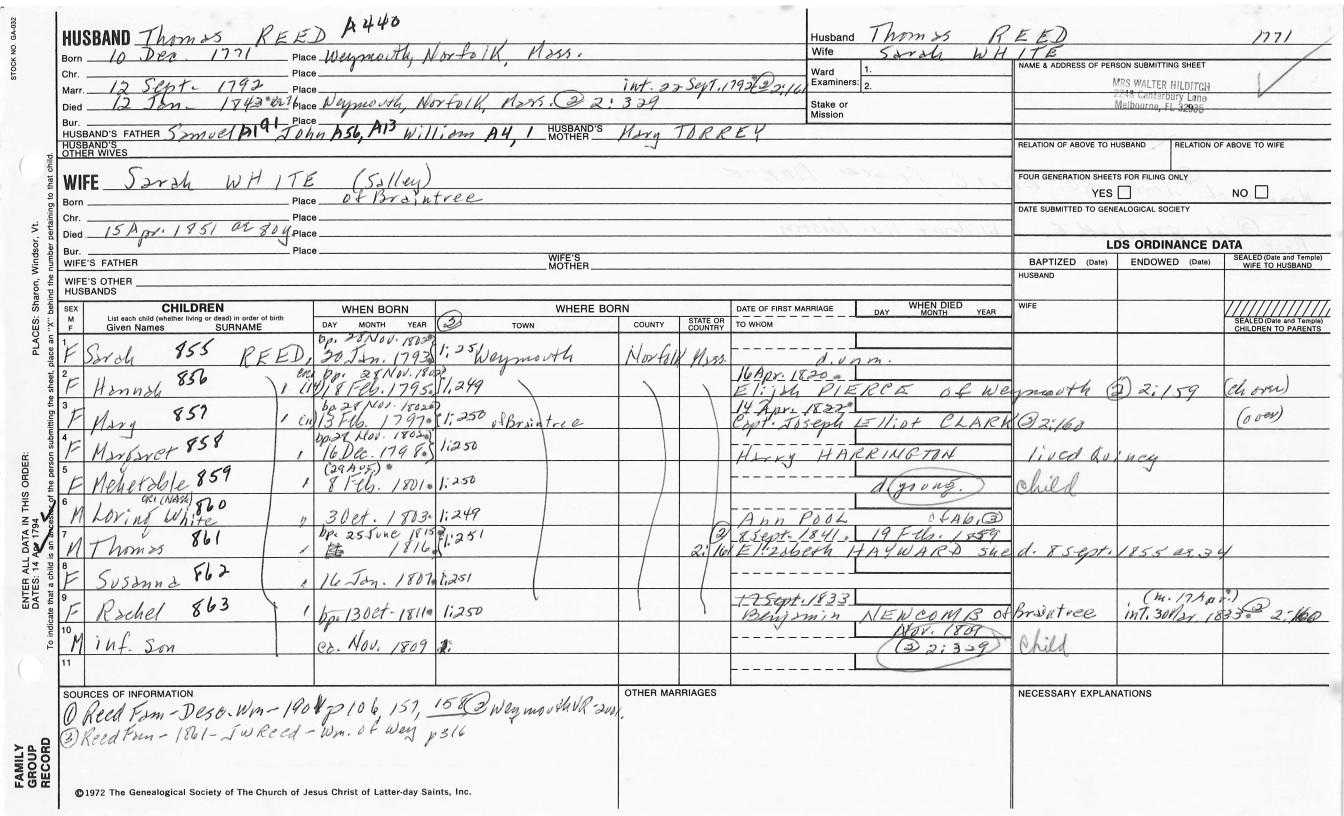 STOCK NO. GA-032
HUSBAND Thomas REED A440
Born 10 Dec. 1771 Place Weymouth, Norfolk, Mass.
Chr. Place
Marr. 12 Sept. 1792 Place int. 22 Sept. 1792 (2) 2:161
Died 12 Jan. 1842 Place Weymouth, Norfolk, Mass. (2) 2:329
Bur. Place
HUSBAND'S FATHER Samuel A191 John A56, A13 William A4, 1 HUSBAND'S MOTHER Mary TORREY
HUSBAND'S OTHER WIVES
Husband Thomas REED 1771
Wife Sarah WHITE
Ward Examiners: 1.
2.
Stake or Mission
NAME & ADDRESS OF PERSON SUBMITTING SHEET
MRS WALTER HILDITCH
2248 Canterbury Lane
Melbourne, FL 32935
RELATION OF ABOVE TO HUSBAND RELATION OF ABOVE TO WIFE
FOUR GENERATION SHEETS FOR FILING ONLY
YES NO
DATE SUBMITTED TO GENEALOGICAL SOCIETY
WIFE Sarah WHITE (Salley)
Born Place of Braintree
Chr. Place
Died 15 Apr. 1851 ae 80y Place
Bur. Place
WIFE'S FATHER WIFE'S MOTHER
WIFE'S OTHER HUSBANDS
LDS ORDINANCE DATA
BAPTIZED (Date) ENDOWED (Date) SEALED (Date and Temple) WIFE TO HUSBAND
HUSBAND
WIFE
SEALED (Date and Temple) CHILDREN TO PARENTS
SEX M F CHILDREN List each child (whether living or dead) in order of birth Given Names SURNAME
WHEN BORN DAY MONTH YEAR (3) WHERE BORN TOWN COUNTY STATE OR COUNTRY
DATE OF FIRST MARRIAGE TO WHOM WHEN DIED DAY MONTH YEAR
bp. 28 Nov. 1802
1 F Sarah 855 REED, 20 Jan. 1793 1:251 Weymouth Norfolk Mass. d. unm.
bp. 28 Nov. 1802 16 Apr. 1820
2 F Hannah 856 (14) 18 Feb. 1795 1:249 Elijah PIERCE of Weymouth (2) 2:159 (ch over)
bp 28 Nov. 1802 14 Apr. 1822
3 F Mary 857 13 Feb. 1797 1:250 of Braintree Capt. Joseph Elliot CLARK (2) 2:160 (over)
bp. 28 Nov. 1802
4 F Margaret 858 16 Dec. 1798 1:250 Harry HARRINGTON lived Quincy
(29 Aug.)
5 F Mehetable 859 8 Feb. 1801 1:250 d. young. child
or (NASH)
6 M Loring White 860 3 Oct. 1803 1:249 Ann POOL of Ab. (3)
bp. 25 June 1815 (2) 8 Sept. 1841 19 Feb. 1859
7 M Thomas 861 1816 1:251 2:161 Elizabeth HAYWARD she d. 8 Sept. 1855 ae 34
8 F Susanna 862 16 Jan. 1807 1:251
17 Sept. 1833 (m. 17 Apr.)
9 F Rachel 863 bp. 13 Oct. 1811 1:250 Benjamin NEWCOMB of Braintree int. 30 Mar. 1833 (2) 2:160
Nov. 1809
10 M inf. son ca. Nov. 1809 1: (2) 2:329 child
11
SOURCES OF INFORMATION
(1) Reed Fam - Desc. Wm - 1901 p 106, 157, 158 (2) Weymouth VR - 2 vol.
(3) Reed Fam - 1861 - JW Reed - Wm. of Wey p 316
OTHER MARRIAGES
NECESSARY EXPLANATIONS
©1972 The Genealogical Society of The Church of Jesus Christ of Latter-day Saints, Inc.
FAMILY GROUP RECORD
ENTER ALL DATA IN THIS ORDER:
DATES: 14 Apr 1794
PLACES: Sharon, Windsor, Vt.
To indicate that a child is an ancestor of the person submitting the sheet, place an "X" behind the number pertaining to that child.